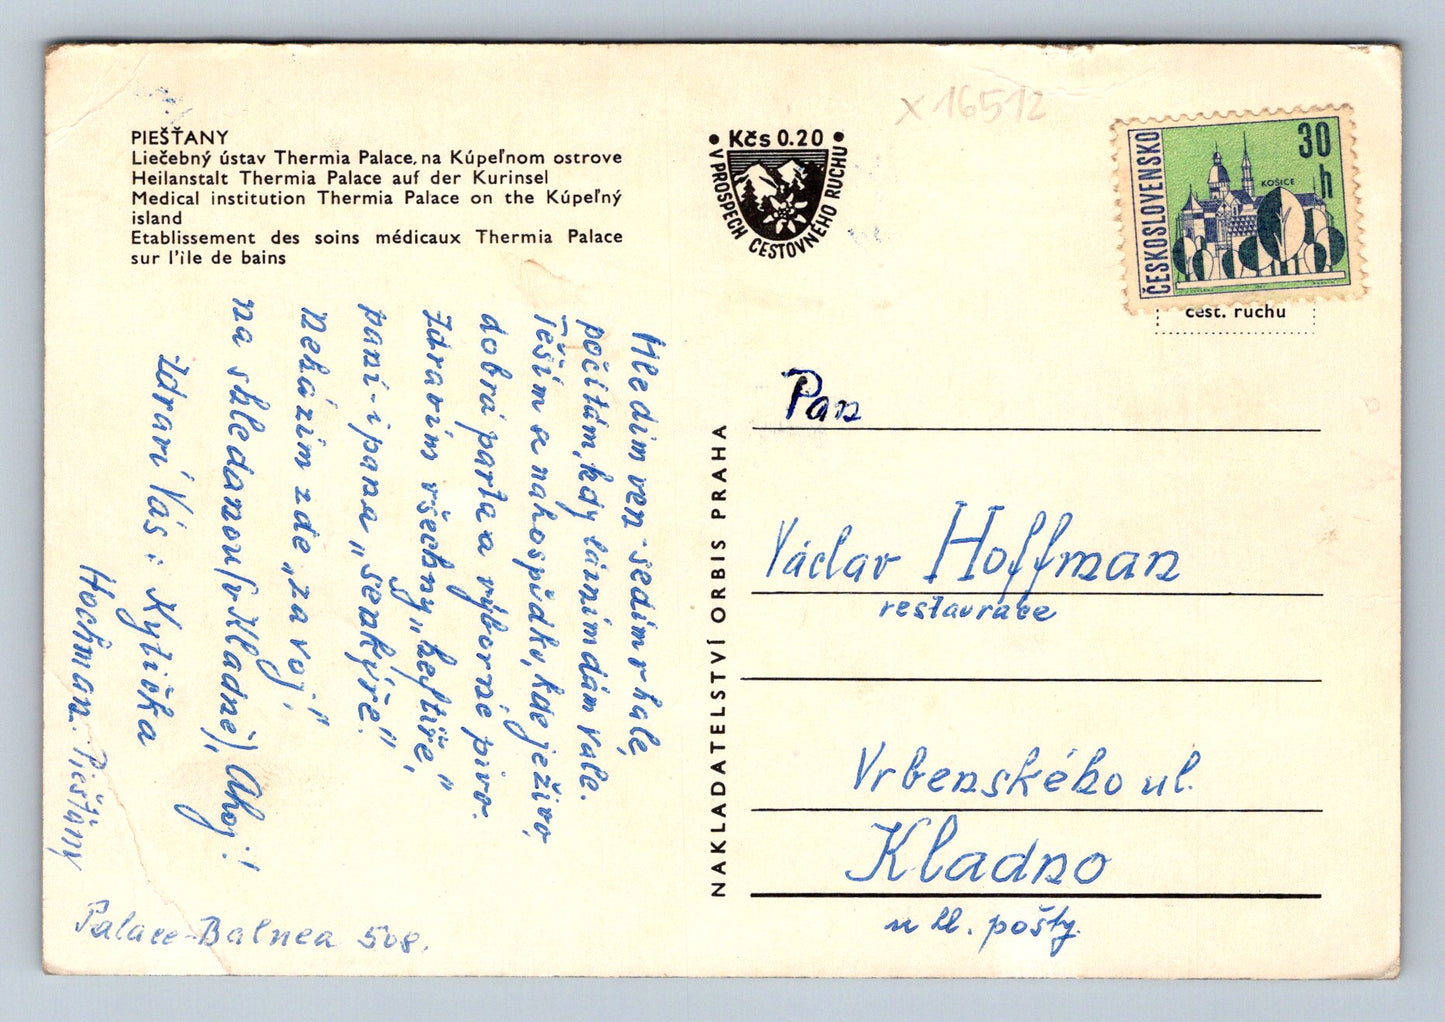 PIEŠŤANY
Liečebný ústav Thermia Palace, na Kúpeľnom ostrove
Heilanstalt Thermia Palace auf der Kurinsel
Medical institution Thermia Palace on the Kúpeľný
island
Etablissement des soins médicaux Thermia Palace
sur l'ile de bains
Kčs 0.20
V PROSPECH CESTOVNÉHO RUCHU
x 16512
ČESKOSLOVENSKO
30
h
KOŠICE
cest. ruchu
Hledím ven - sedím v hale,
počítám, kdy lázním dám vale.
Těším se na hospůdku, kde je živo,
dobrá parta a výborné pivo.
Zdravím všechny „keftíře,"
paní - i pana „šenkýře."
Neházím zde „za voj,"
na shledanou (v Kladně), Ahoj!
Zdraví Vás: Kytička
Hochman. Piešťany
Palace-Balnea 508.
NAKLADATELSTVÍ ORBIS PRAHA
Pan
Václav Hoffman
restaurace
Vrbenského ul.
Kladno
u hl. pošty.